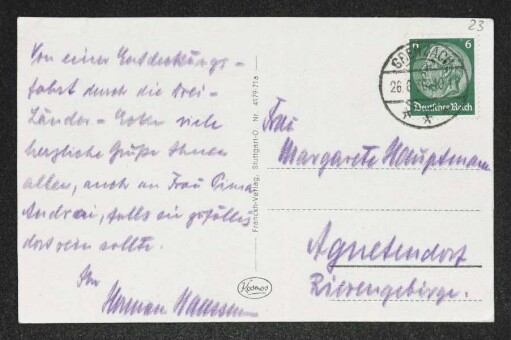 23
Von einer Entdeckungs-
fahrt durch die Drei-
Länder-Ecke viele
herzliche Grüße Ihnen
allen, auch an Frau
Andrei, falls sie
dort sein sollte.
Ihr
Herman
Franckh-Verlag, Stuttgart-O Nr. 4179-71a
Kosmos
6
Deutsches Reich
26.
Frau
Margarete Hauptmann
Agnetendorf
Riesengebirge.